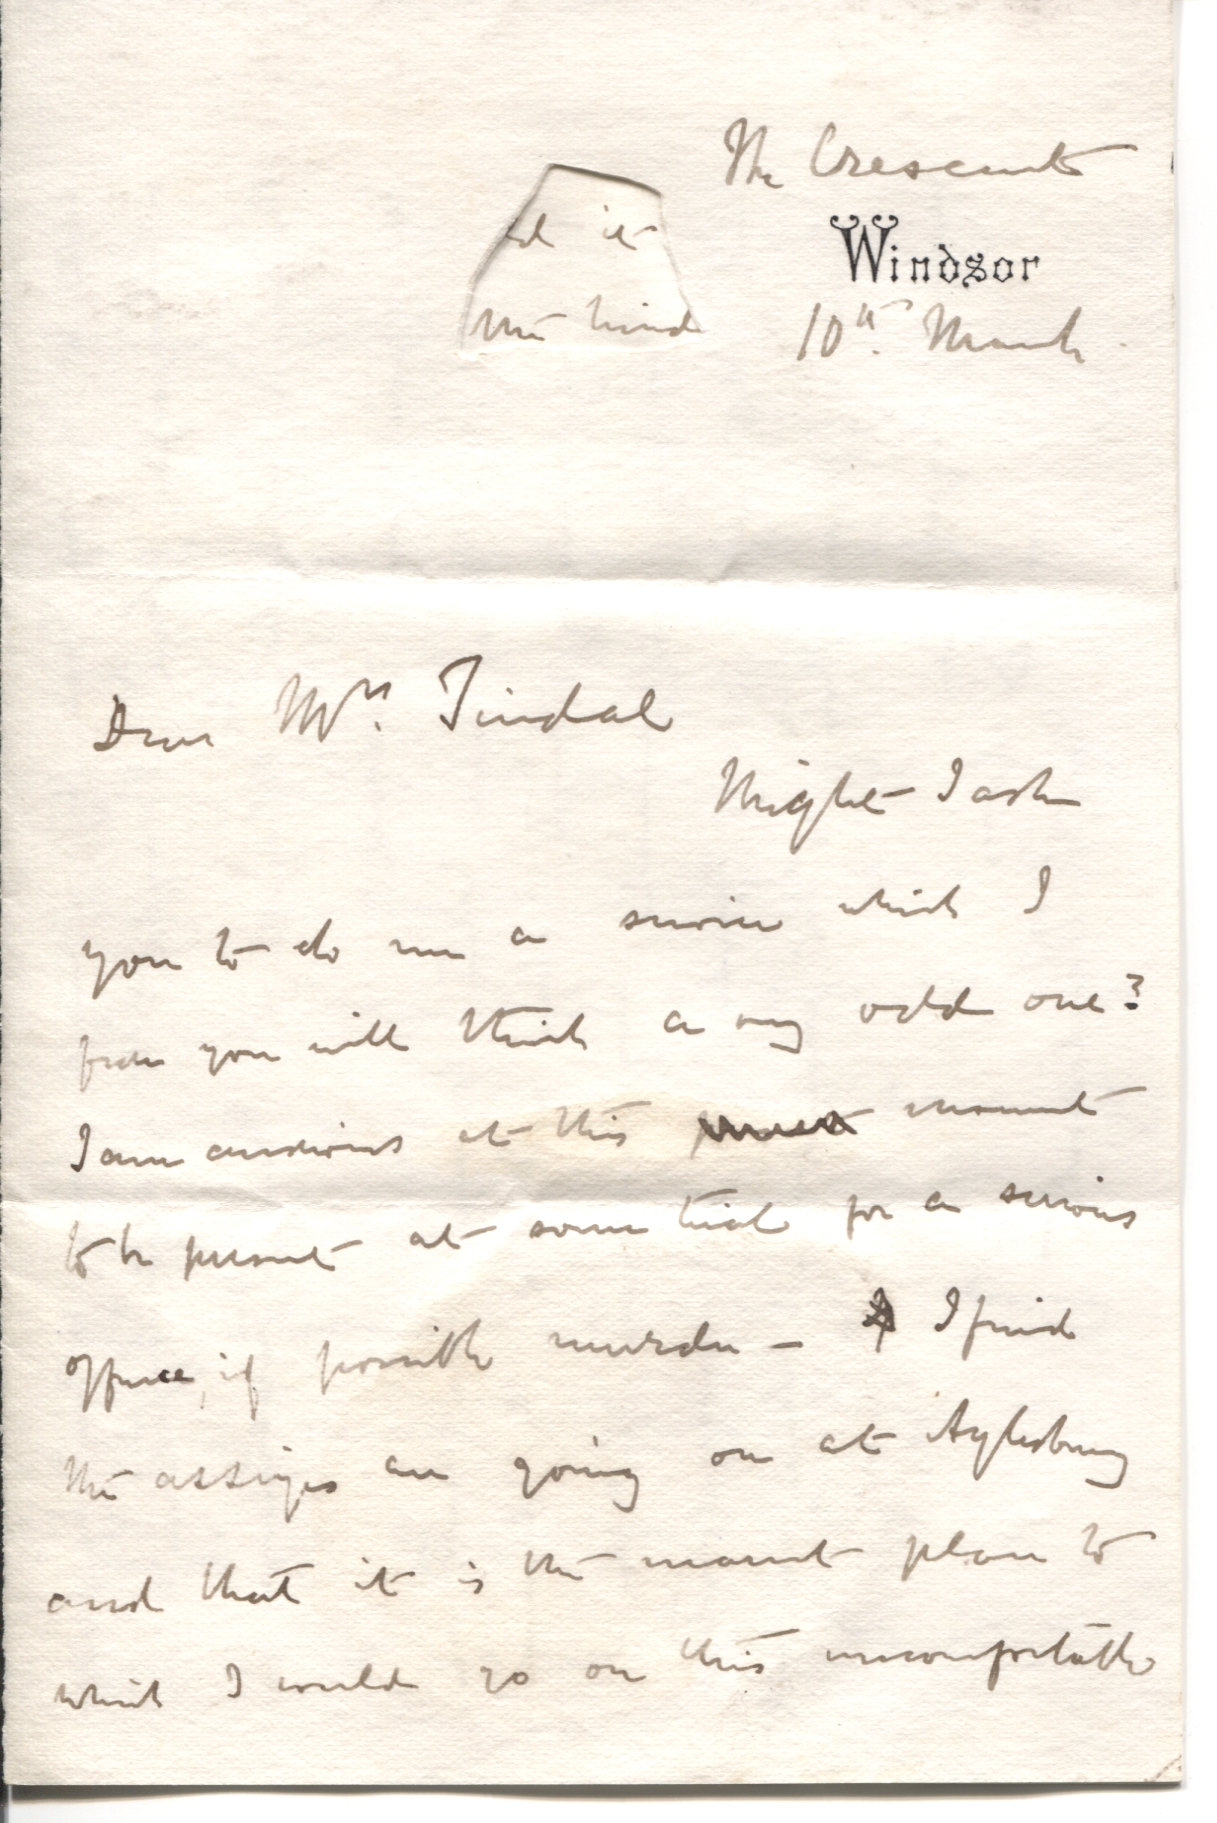 The Crescent
Windsor
10th. March
ed it
the kind
Dear Mrs. Tindal
Might I ask
you to do me a service which I
fear you will think a very odd one?
I am anxious at this moment
to be present at some trial for a serious
offence, if possible murder – I find
the assizes are going on at Aylesbury
and that it is the nearest place to
which I could go on this uncomfortable